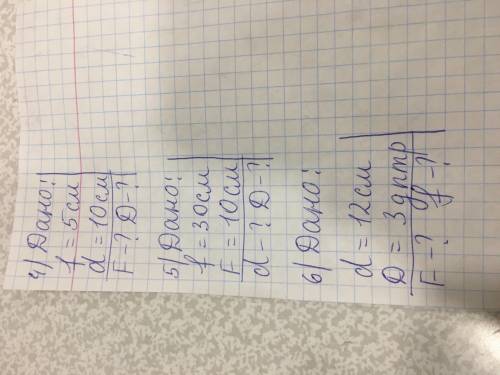 4) Дано:
f = 5 см
d = 10 см
F - ? D - ?
5) Дано:
f = 30 см
F = 10 см
d - ? D - ?
6) Дано:
d = 12 см
D = 3 дптр
F - ? f - ?